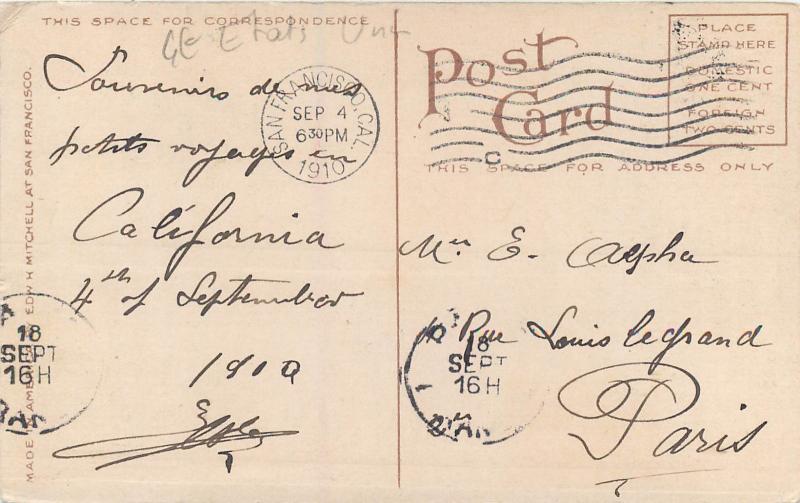 THIS SPACE FOR CORRESPONDENCE
Etats Unis
Souvenirs de mes
petits voyages en
California
4th of September
1910
SAN FRANCISCO, CAL.
SEP 4
6 30 PM
1910
Post
Card
PLACE
STAMP HERE
DOMESTIC
ONE CENT
FOREIGN
TWO CENTS
THIS SPACE FOR ADDRESS ONLY
E. Alpha
Rue Louis legrand
Paris
18
SEPT
16H
18
SEPT
16H
EDW H MITCHELL AT SAN FRANCISCO.
MADE IN